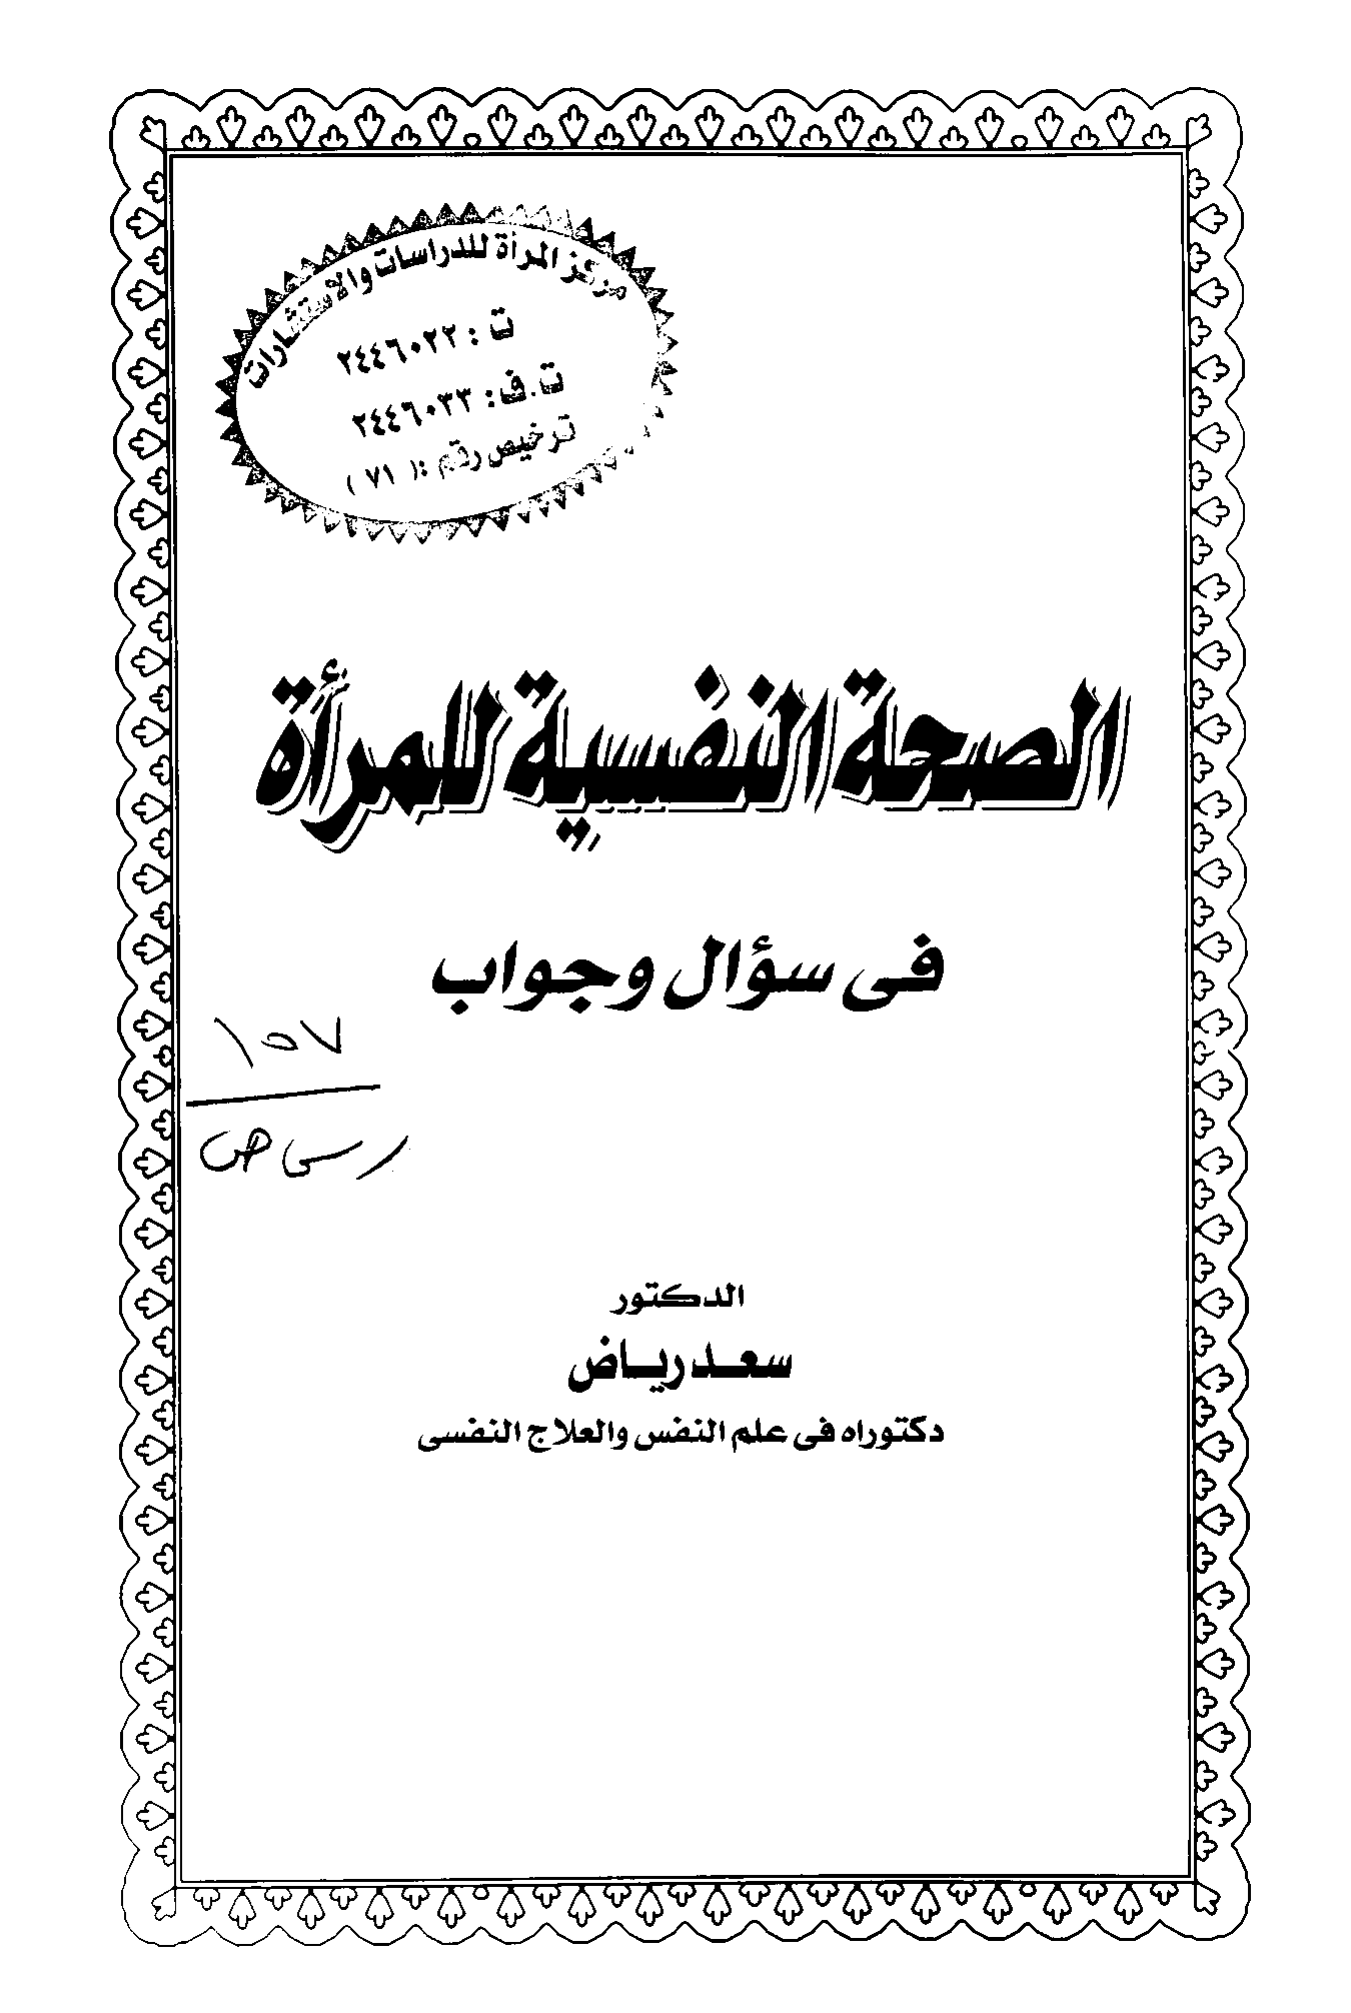 مركز المرأة للدراسات والاستشارات
ت : ٢٤٤٦٠٢٢
ت.ف: ٢٤٤٦٠٣٣
ترخيص رقم :( ٧١ )
الصحة النفسية للمرأة
فى سؤال وجواب
١٥٧
ر س ص
الدكتور
سعد رياض
دكتوراه فى علم النفس والعلاج النفسى